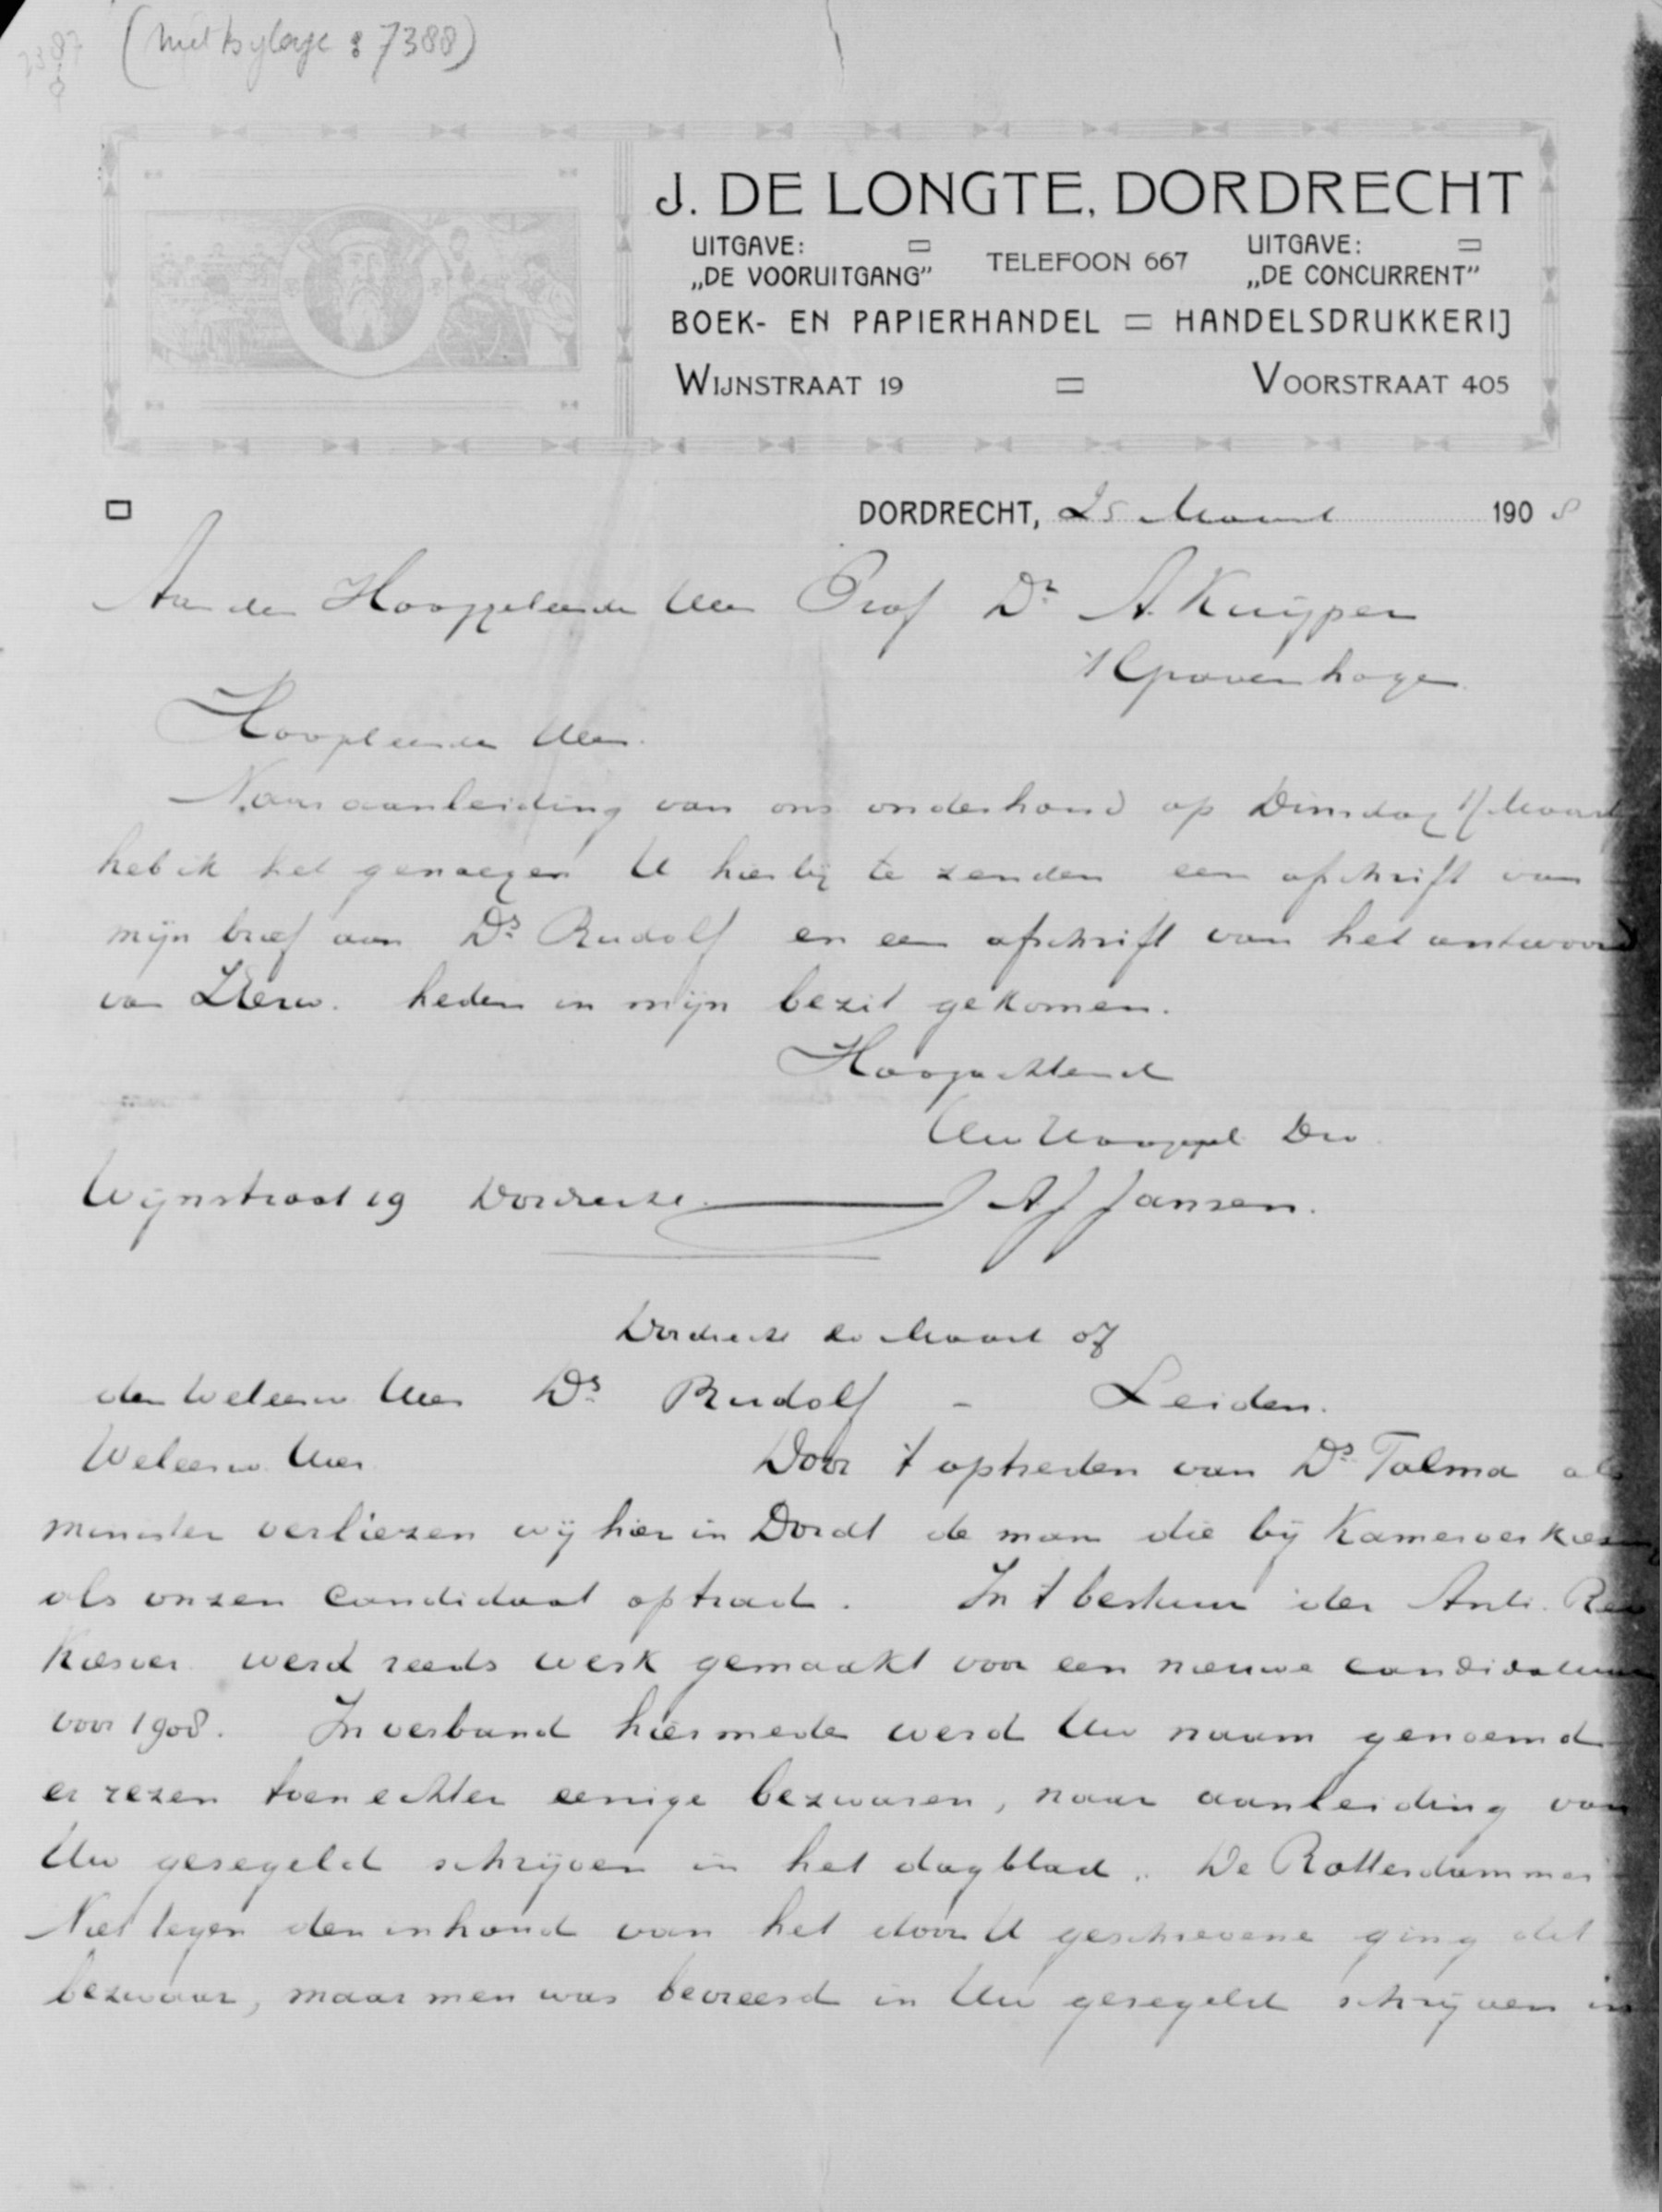 (met bylage : 7388)
J. DE LONGTE, DORDRECHT
UITGAVE: „DE VOORUITGANG”
TELEFOON 667
UITGAVE: „DE CONCURRENT”
BOEK- EN PAPIERHANDEL = HANDELSDRUKKERIJ
WIJNSTRAAT 19 VOORSTRAAT 405
DORDRECHT, 25 Maart 1908
Aan den Hooggeleerde Heer Prof Dr A. Kuijper
'sGravenhage
Hoogleerende Heer.
Naar aanleiding van ons onderhoud op Dinsdag 17 Maart
heb ik het genoegen U hierbij te zenden een afschrift van
mijn brief aan Ds Rudolf en een afschrift van het antwoord
van ZEerw. heden in mijn bezit gekomen.
Hoogachtend
Uw Hooggel Dw
Wijnstraat 19 Dordrecht. A J Jansen.
Dordrecht Maart
den Weleerw Heer Ds Rudolf - Leiden.
Weleerw. Heer Door 't optreden van Ds Talma als
minister verliezen wij hier in Dordt de man die bij Kamerverkiezing
als onzen candidaat optrad. In 't bestuur der Anti. Rev
Kiesver. werd reeds werk gemaakt voor een nieuwe candidatuur
voor 1908. In verband hiermede werd Uw naam genoemd
er rezen toen echter eenige bezwaren, naar aanleiding van
Uw geregeld schrijven in het dagblad „De Rotterdammer
Niet tegen den inhoud van het door U geschrevene ging dit
bezwaar, maar men was bevreesd in Uw geregeld schrijven in